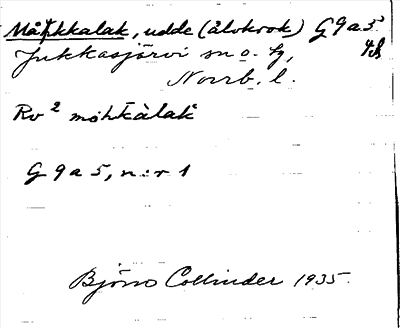 Måhkkalak, udde (älvkrok) G 9 a 5
Jukkasjärvi sn o. tg,
Norrb. l.
Rv² mo̊hkàlak
G 9 a 5, n:r 1
Björn Collinder 1935.